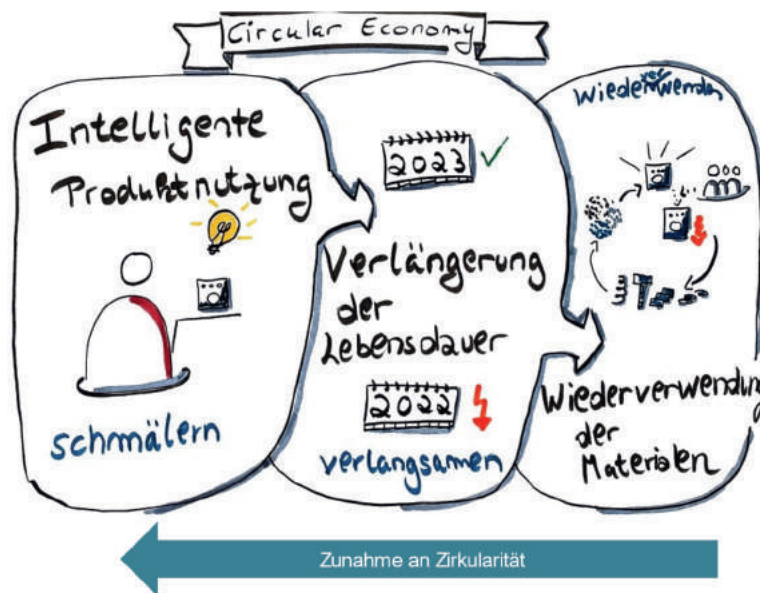 Circular Economy
Intelligente
Produktnutzung
schmälern
2023
Verlängerung
der
Lebensdauer
2022
verlangsamen
Wiederverwenden
Wiederverwendung
der
Materialen
Zunahme an Zirkularität